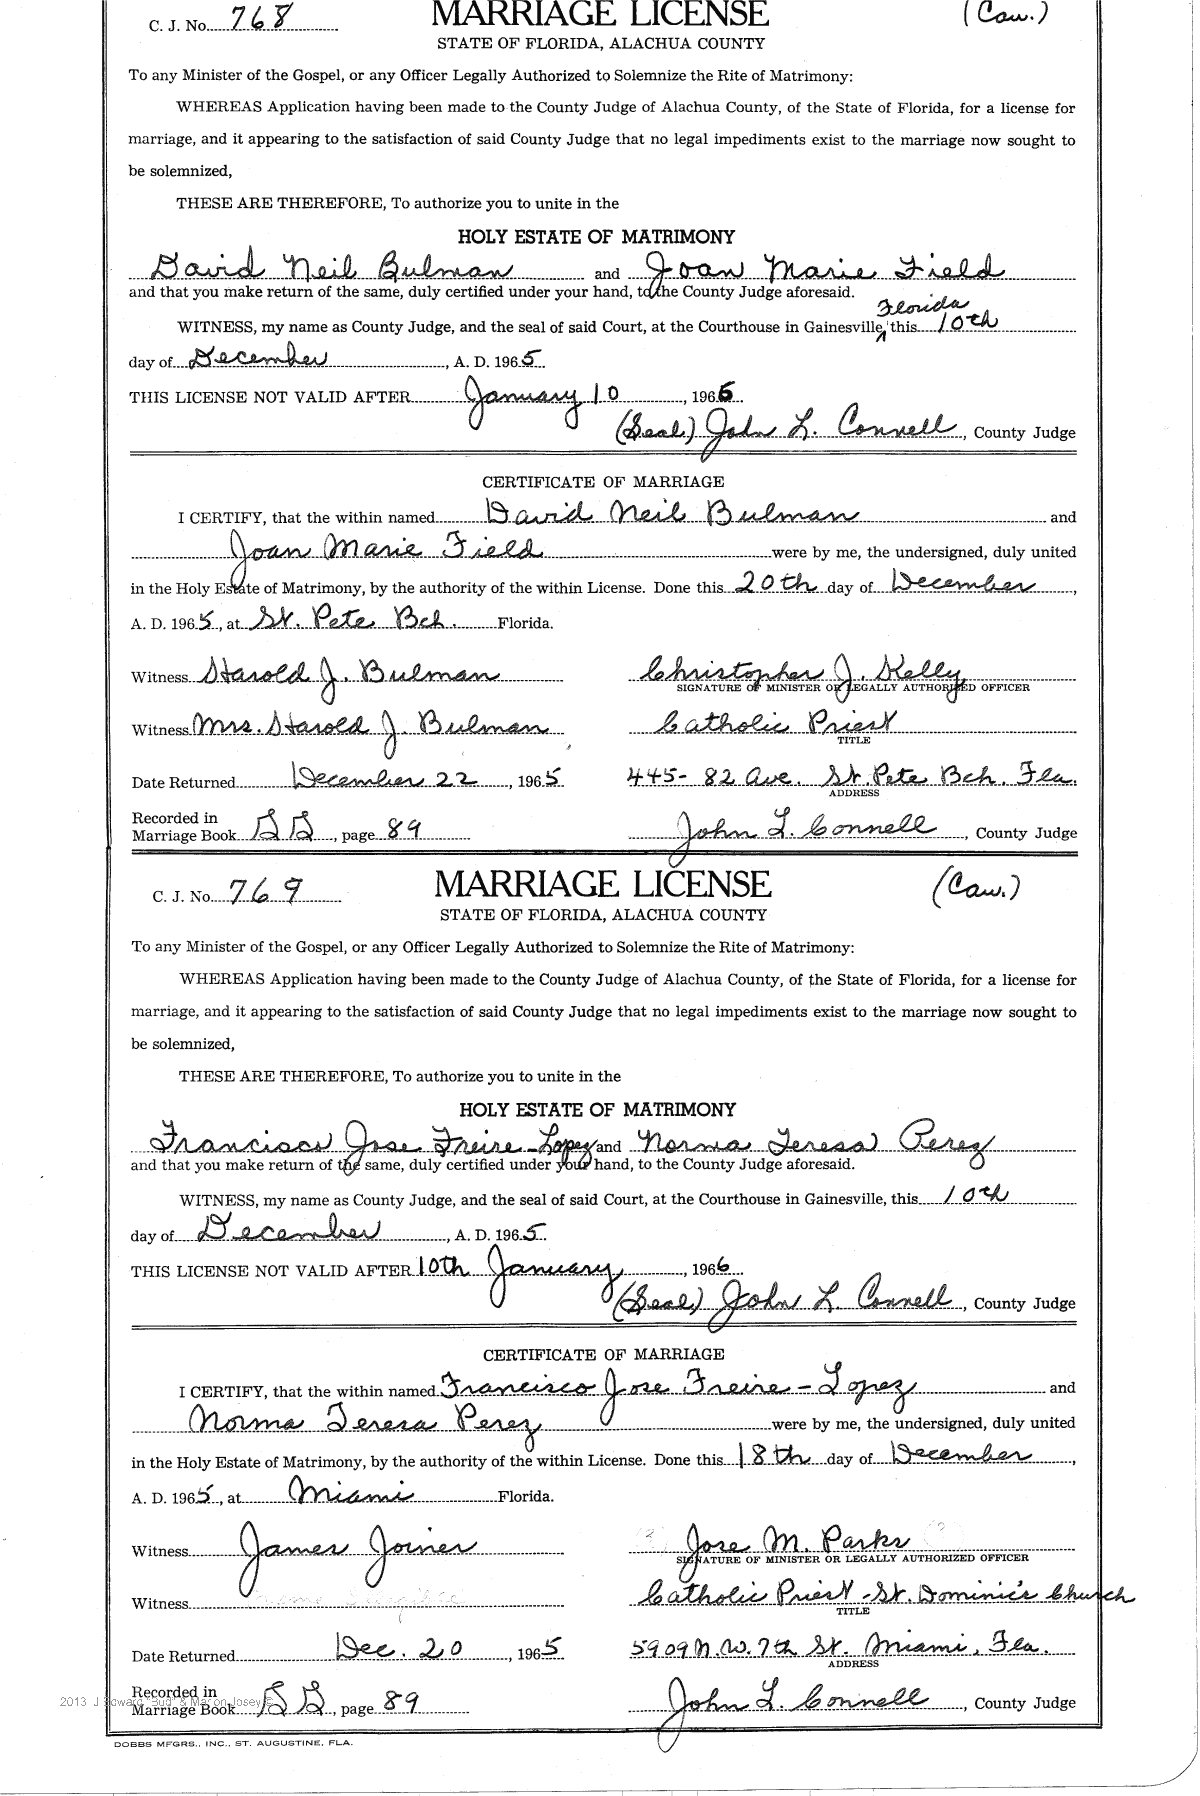 C. J. No. 768 MARRIAGE LICENSE (Caw.)
STATE OF FLORIDA, ALACHUA COUNTY
To any Minister of the Gospel, or any Officer Legally Authorized to Solemnize the Rite of Matrimony:
WHEREAS Application having been made to the County Judge of Alachua County, of the State of Florida, for a license for
marriage, and it appearing to the satisfaction of said County Judge that no legal impediments exist to the marriage now sought to
be solemnized,
THESE ARE THEREFORE, To authorize you to unite in the
HOLY ESTATE OF MATRIMONY
David Neil Bulman and Joan Marie Field
and that you make return of the same, duly certified under your hand, to the County Judge aforesaid.
Florida
WITNESS, my name as County Judge, and the seal of said Court, at the Courthouse in Gainesville, this 10th
day of December, A. D. 1965
THIS LICENSE NOT VALID AFTER January 10, 1966
(Seal) John L. Connell, County Judge
CERTIFICATE OF MARRIAGE
I CERTIFY, that the within named David Neil Bulman and
Joan Marie Field were by me, the undersigned, duly united
in the Holy Estate of Matrimony, by the authority of the within License. Done this 20th day of December,
A. D. 1965, at St. Pete Bch. Florida.
Witness Harold J. Bulman Christopher J. Kelly
SIGNATURE OF MINISTER OR LEGALLY AUTHORIZED OFFICER
Witness Mrs. Harold J. Bulman Catholic Priest
TITLE
Date Returned December 22, 1965 445- 82 Ave. St. Pete Bch. Fla.
ADDRESS
Recorded in
Marriage Book SS, page 89 John L. Connell, County Judge
C. J. No. 769 MARRIAGE LICENSE (Caw.)
STATE OF FLORIDA, ALACHUA COUNTY
To any Minister of the Gospel, or any Officer Legally Authorized to Solemnize the Rite of Matrimony:
WHEREAS Application having been made to the County Judge of Alachua County, of the State of Florida, for a license for
marriage, and it appearing to the satisfaction of said County Judge that no legal impediments exist to the marriage now sought to
be solemnized,
THESE ARE THEREFORE, To authorize you to unite in the
HOLY ESTATE OF MATRIMONY
Francisco Jose Freire-Lopez and Norma Teresa Perez
and that you make return of the same, duly certified under your hand, to the County Judge aforesaid.
WITNESS, my name as County Judge, and the seal of said Court, at the Courthouse in Gainesville, this 10th
day of December, A. D. 1965.
THIS LICENSE NOT VALID AFTER 10th January, 1966
(Seal) John L. Connell, County Judge
CERTIFICATE OF MARRIAGE
I CERTIFY, that the within named Francisco Jose Freire-Lopez and
Norma Teresa Perez were by me, the undersigned, duly united
in the Holy Estate of Matrimony, by the authority of the within License. Done this 18th day of December,
A. D. 1965, at Miami Florida.
Witness James Joiner Jose M. Parks
SIGNATURE OF MINISTER OR LEGALLY AUTHORIZED OFFICER
Witness Catholic Priest - St. Dominic's Church
TITLE
Date Returned Dec. 20 1965 5909 N.W. 7th St. Miami, Fla.
ADDRESS
Recorded in
2013 J Edward "Bud" & Marion Josey ©
Marriage Book SS, page 89 John L. Connell, County Judge
DOBBS MFGRS., INC., ST. AUGUSTINE, FLA.